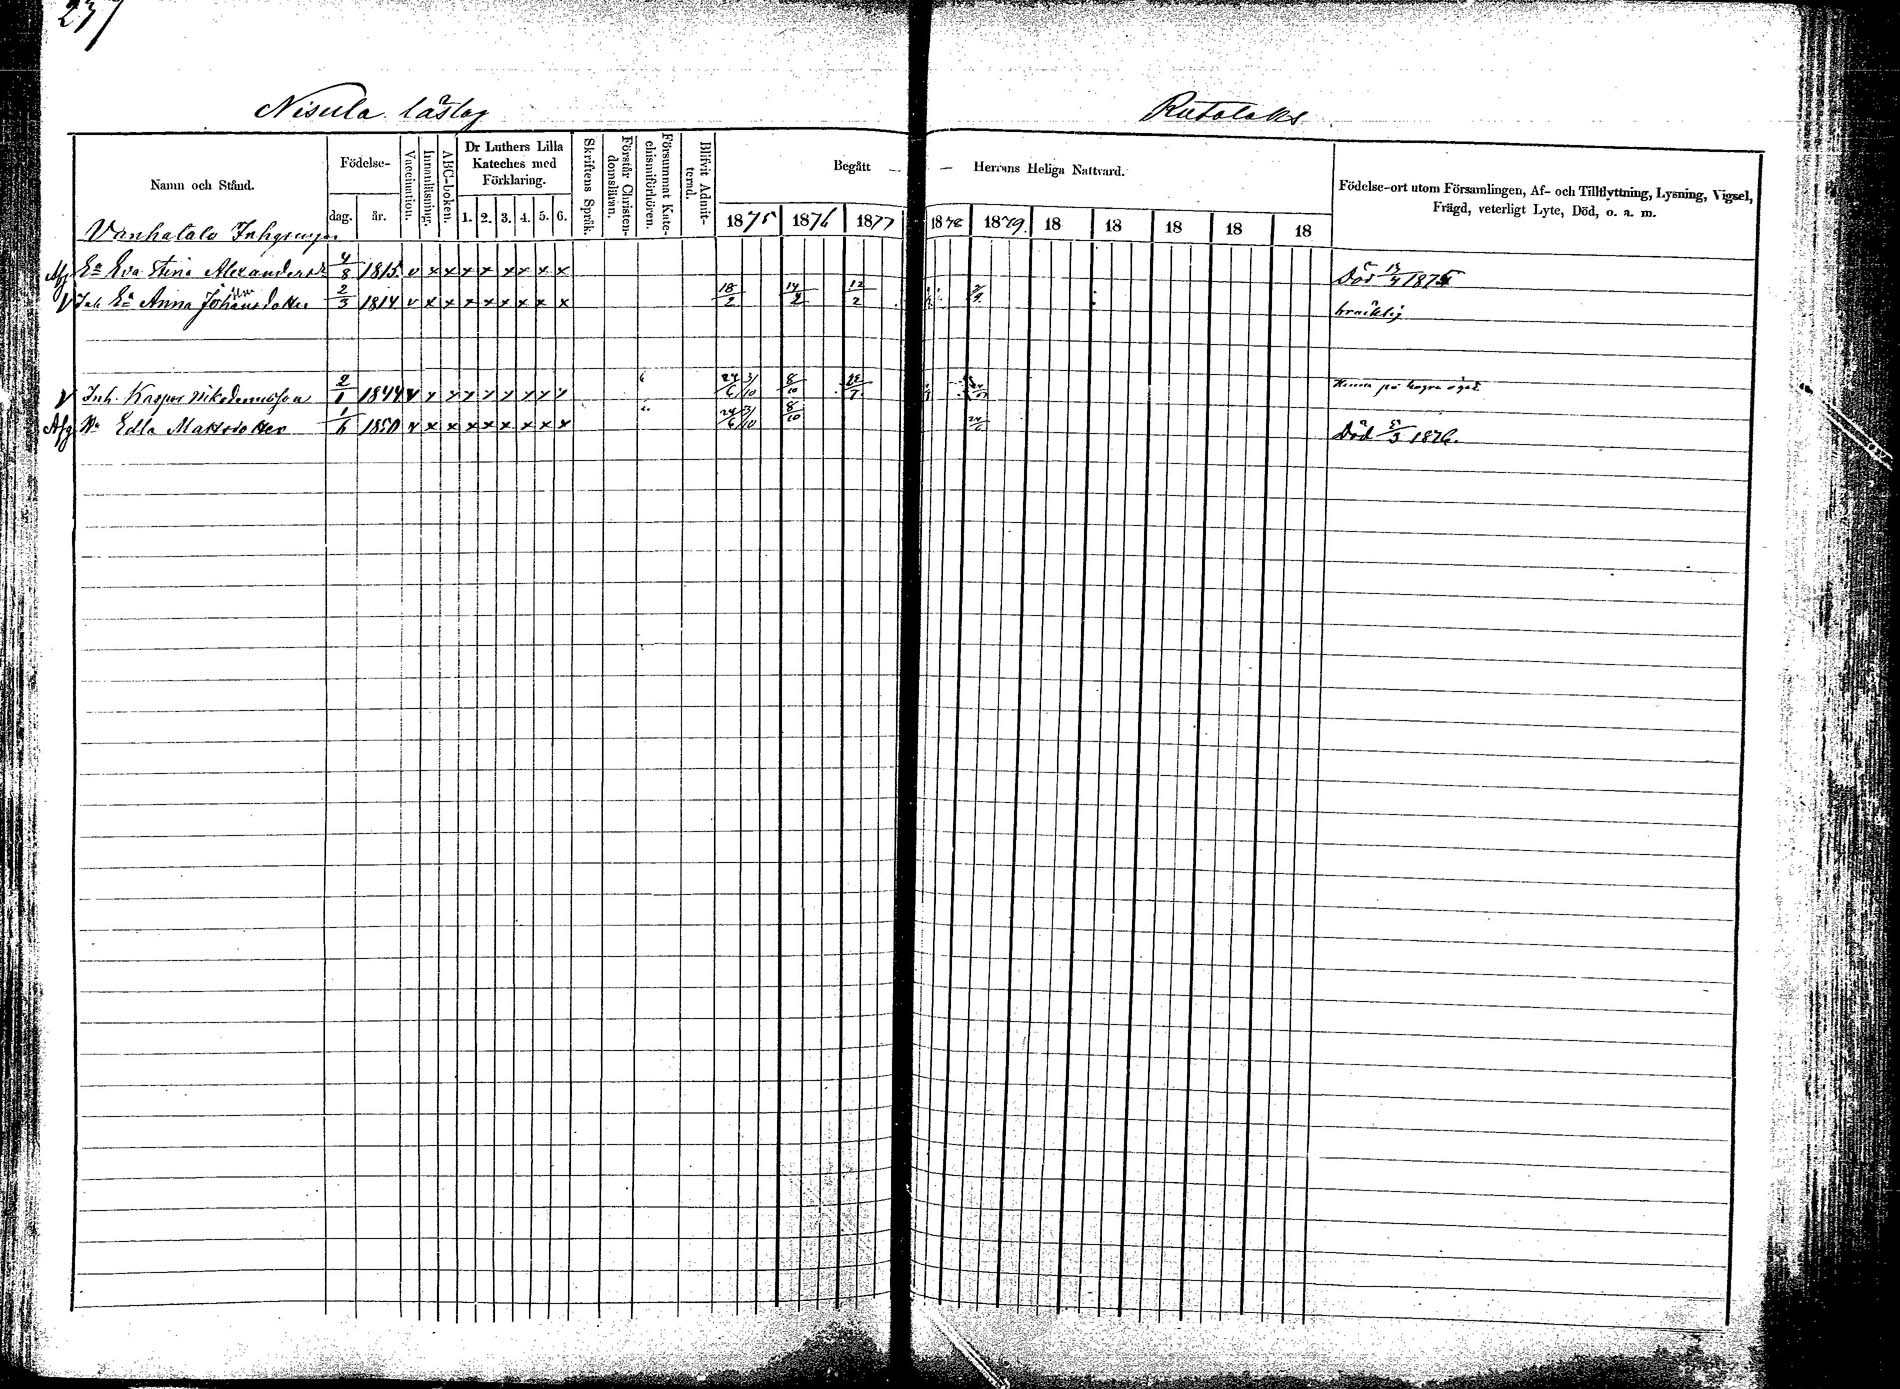 237
Nisula läslag
Rutalaks
Namn och Stånd.
Födelse-
dag.
år.
Vaccination.
Innanläsning.
ABC-boken.
Dr Luthers Lilla Kateches med Förklaring.
1. 2. 3. 4. 5. 6.
Skriftens Språk.
Förstår Christendomsläran.
Försummat Katechismiförhören.
Blifvit Admitterad.
Begått — — Herrans Heliga Nattvard.
1875 1876 1877 1878 1879 18 18 18 18 18
Födelse-ort utom Församlingen, Af- och Tillflyttning, Lysning, Vigsel,
Frägd, veterligt Lyte, Död, o. a. m.
Vanhatalo Inhysingar
Afg Ea Eva Stina Alexandersd. 4/8 1815 v x x x x x x x x Död 13/4 1875
V Inh. Ea Anna Johansdotter 2/3 1814 v x x x x x x x x 18/2 14/2 12/2 bräcklig
V Inh. Kasper Nikodemusson 2/1 1844 v x x x x x x x x 24/6 3/10 8/10 28/7
Afg Ha Edla Mattsdotter 1/6 1850 v x x x x x x x x 24/6 3/10 8/10 24/6 Död 5/3 1876.